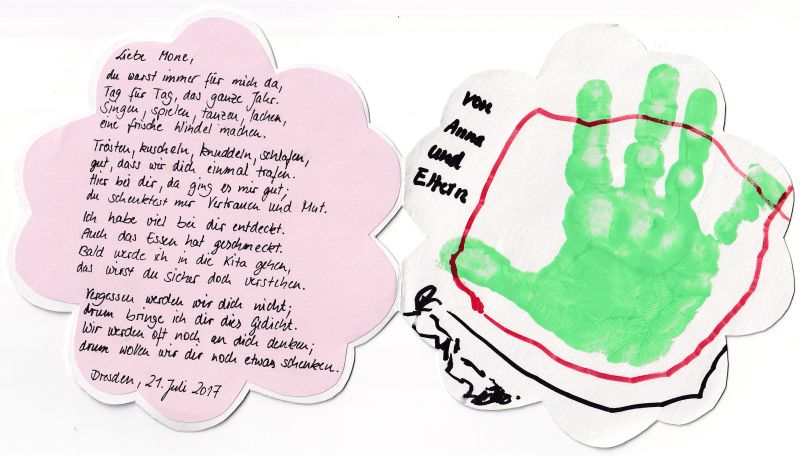 Liebe Mone,
du warst immer für mich da,
Tag für Tag, das ganze Jahr.
Singen, spielen, tanzen, lachen,
eine frische Windel machen.
Trösten, kuscheln, knuddeln, schlafen,
gut, dass wir dich einmal trafen.
Hier bei dir, da ging es mir gut;
du schenktest mir Vertrauen und Mut.
Ich habe viel bei dir entdeckt.
Auch das Essen hat geschmeckt.
Bald werde ich in die Kita gehen,
das wirst du sicher doch verstehen.
Vergessen werden wir dich nicht;
drum bringe ich dir dies Gedicht.
Wir werden oft noch an dich denken;
drum wollen wir dir noch etwas schenken.
Dresden, 21. Juli 2017
von
Anna
und
Eltern